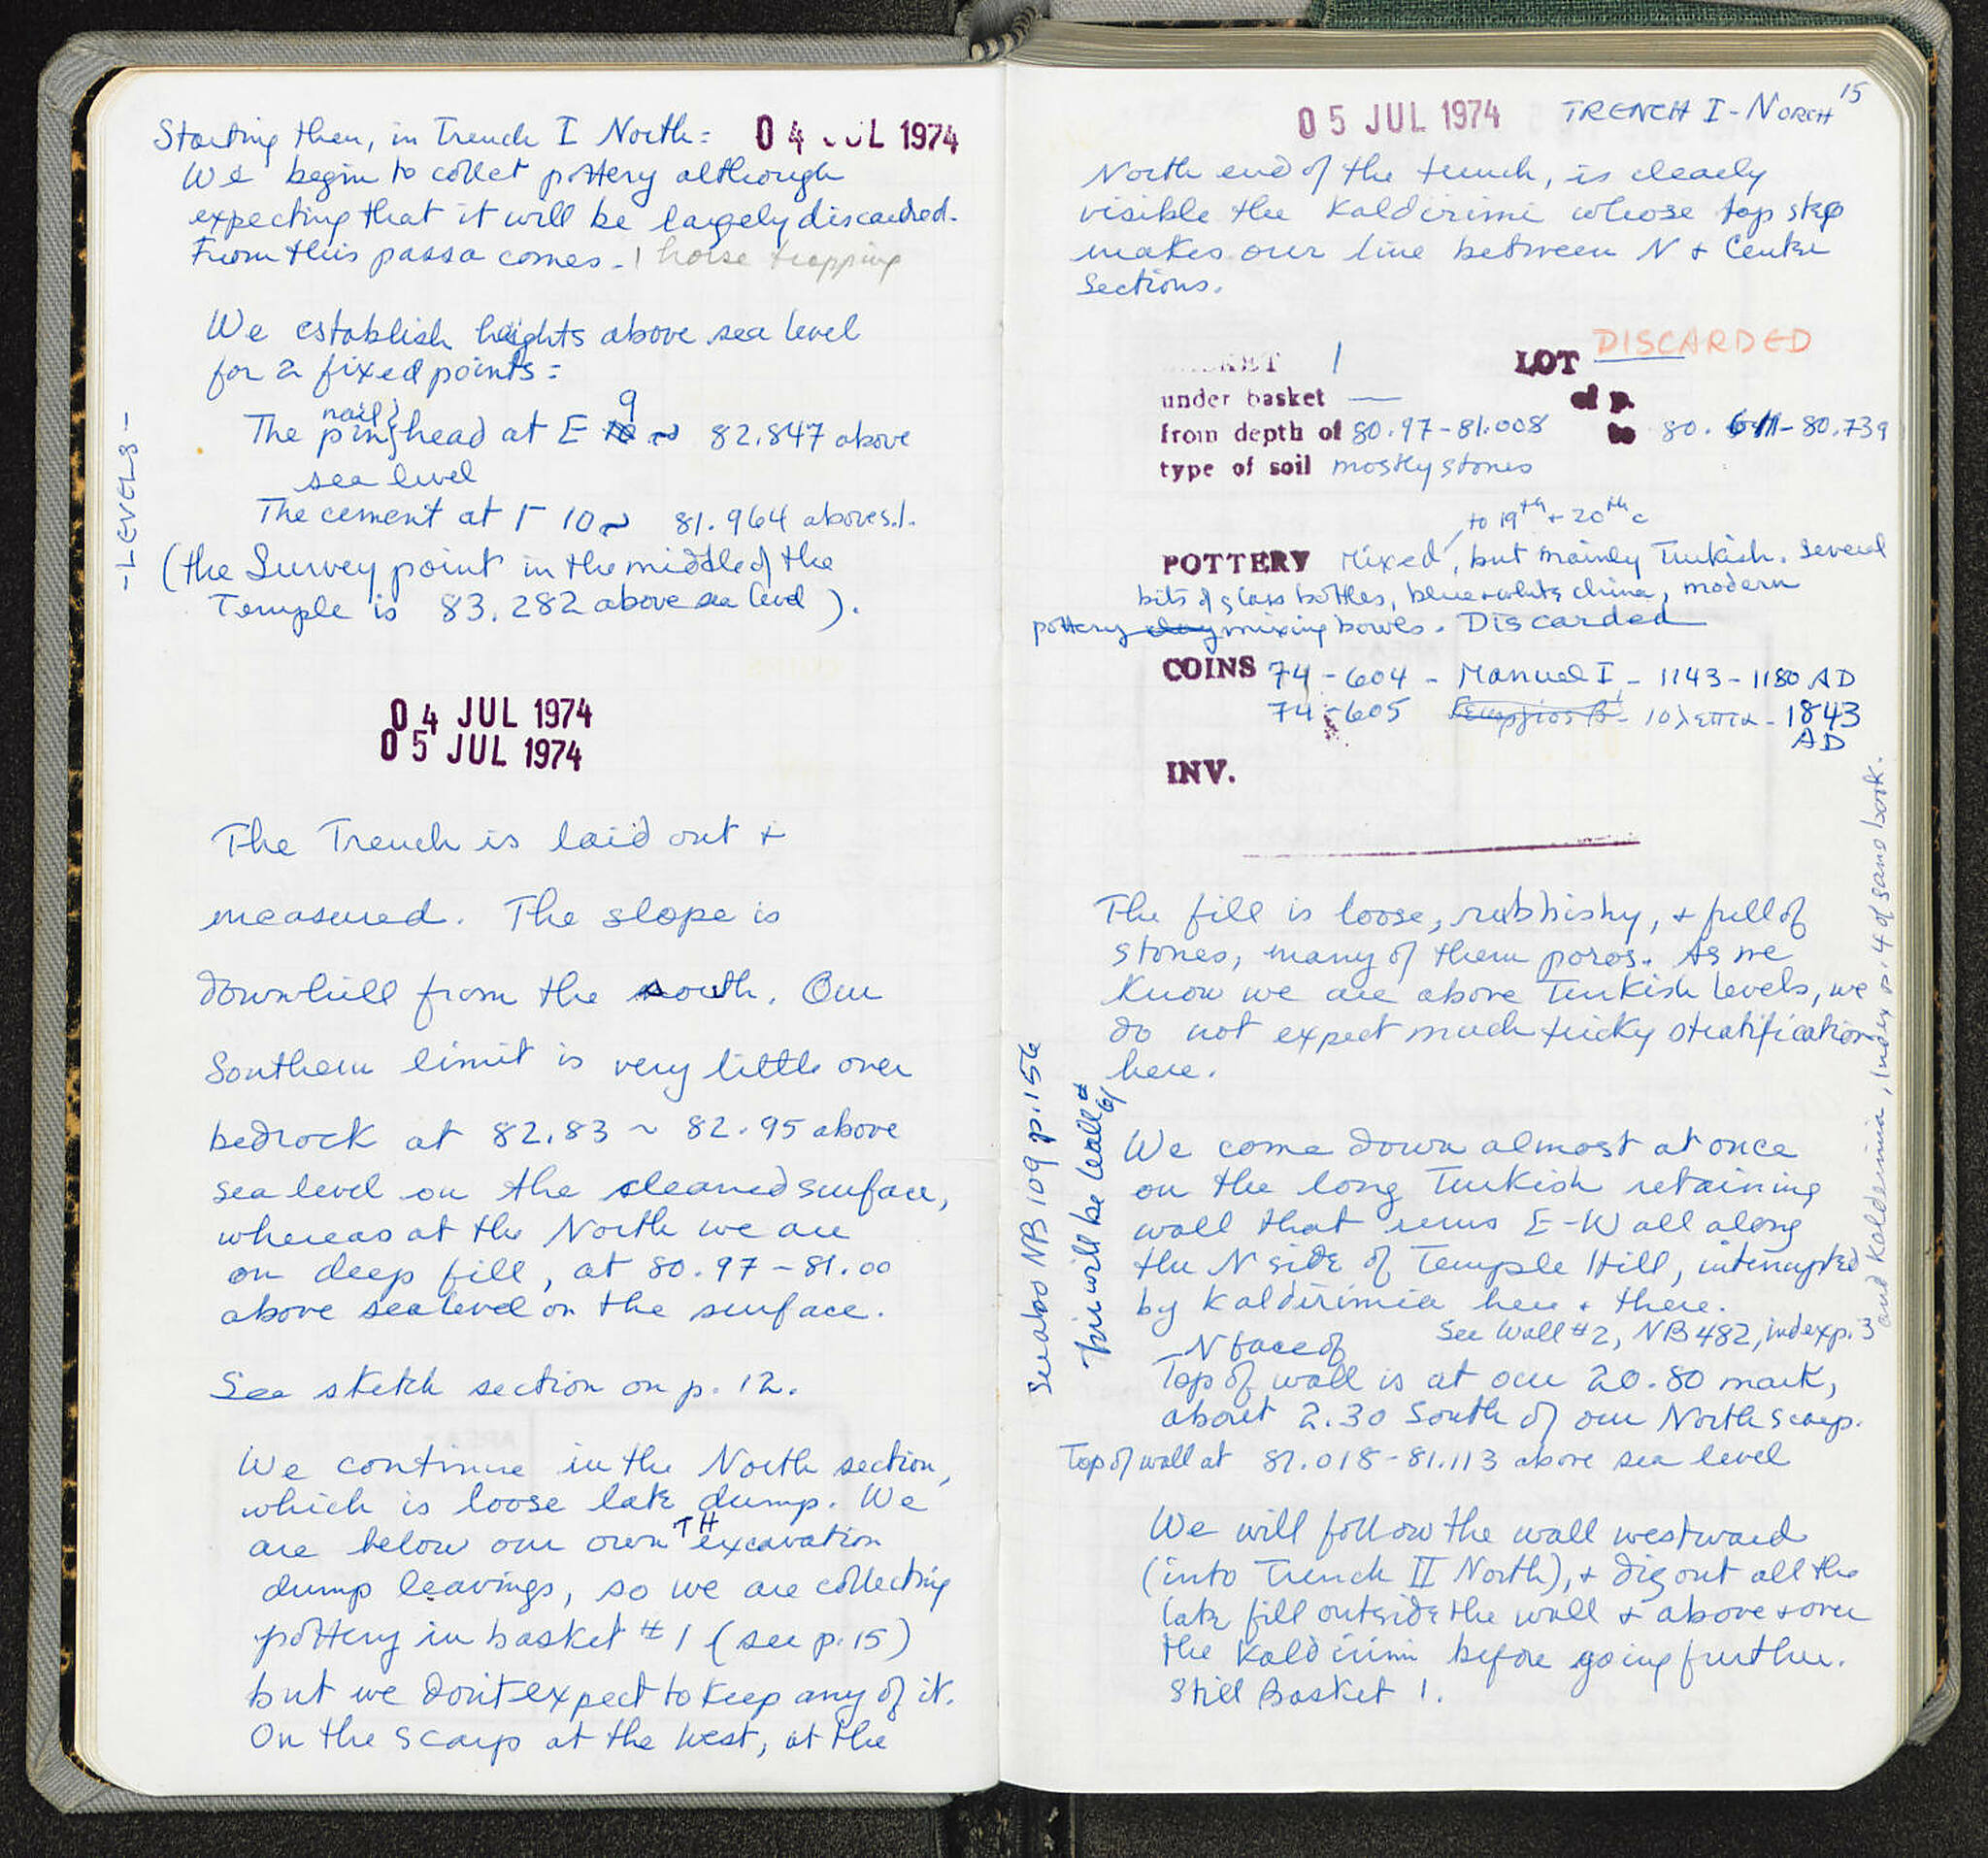 Starting then, in Trench I North: 04 JUL 1974
We begin to collect pottery although
expecting that it will be largely discarded.
From this passa comes - 1 horse trapping
We establish heights above sea level
for 2 fixed points:
nail
9
The pin} head at E ~ 82.847 above
sea level
The cement at Γ 10 ~ 81.964 above s.l.
(the Survey point in the middle of the
Temple is 83.282 above sea level).
-LEVELS-
04 JUL 1974
05 JUL 1974
The Trench is laid out +
measured. The slope is
downhill from the south. Our
Southern limit is very little over
bedrock at 82.83 ~ 82.95 above
sea level on the cleaned surface,
whereas at the North we are
on deep fill, at 80.97 - 81.00
above sea level on the surface.
See sketch section on p. 12.
We continue in the North section,
which is loose late dump. We
TH
are below our own excavation
dump leavings, so we are collecting
pottery in basket #1 (see p. 15)
but we don't expect to keep any of it.
On the scarp at the West, at the
15
05 JUL 1974 TRENCH I - NORTH
North end of the trench, is clearly
visible the Kaldirimi whose top step
makes our line between N + Center
Sections.
BASKET 1 LOT DISCARDED
under basket — of p.
from depth of 80.97 - 81.008 to 80. - 80.739
type of soil mostly stones
to 19th + 20th c
POTTERY Mixed, but mainly Turkish. Several
bits of glass bottles, blue + white china, modern
pottery clay mixing bowls. Discarded
COINS 74 - 604 - Manuel I - 1143 - 1180 AD
74 - 605 Γεωργιος Β - 10 λεπτα - 1843
AD
INV.
The fill is loose, rubbishy, + full of
stones, many of them poros. As we
know we are above Turkish levels, we
do not expect much tricky stratification
here.
We come down almost at once
on the long Turkish retaining
wall that runs E-W all along
the N side of Temple Hill, interrupted
by Kaldirimia here + there.
See Wall #2, NB 482, index p. 3
and Kaldirimia, Index p. 4 of same book.
See also NB 109 p. 156
This will be Wall #
N face of
Top of wall is at our 20.80 mark,
about 2.30 South of our North scarp.
Top of wall at 81.018 - 81.113 above sea level
We will follow the wall westward
(into Trench II North), + dig out all the
late fill outside the wall + above + over
the Kaldirimi before going further.
Still Basket 1.